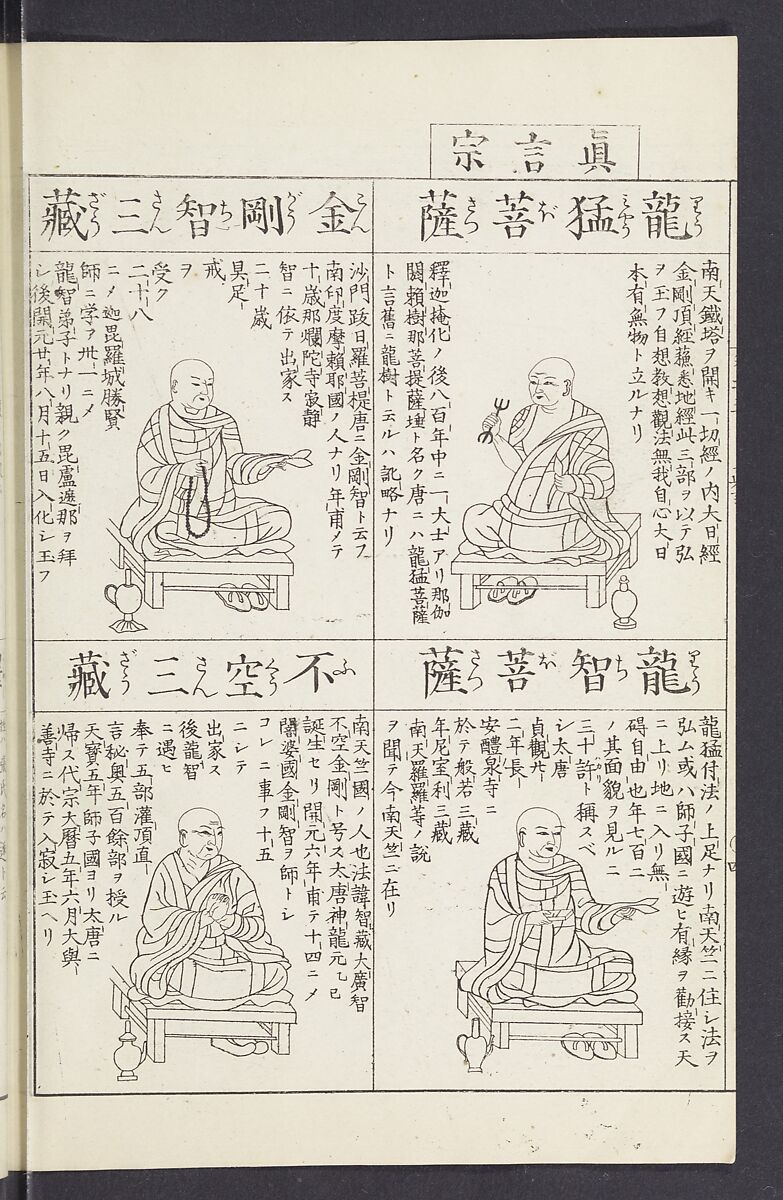 眞言宗
龍猛菩薩
りうみやうぼさつ
南天鐵塔ヲ開キ一切經ノ内大日經
金剛頂經蘓悉地經此三部ヲ以テ弘
ヲ玉フ自想教想觀法無我自心大日
本有無物ト立ルナリ
釋迦掩化ノ後八百年中ニ一大士アリ那伽
閼頼樹那菩提薩埵ト名ク唐ニハ龍猛菩薩
ト言舊ニ龍樹ト云ルハ訛略ナリ
金剛智三藏
こんがうちさんざう
沙門跋日羅菩提唐ニ金剛智ト云フ
南印度摩頼耶國ノ人ナリ年甫メテ
十歳那爛陀寺寂靜
智ニ依テ出家ス
二十歳
具足
戒
ヲ
受ク
二十八
ニメ迦毘羅城勝賢
師ニ学ア卅一ニメ
龍智弟子トナリ親ク毘盧遮那ヲ拜
シ後開元廿年八月十五日入化シ玉フ
龍智菩薩
りうちぼさつ
龍猛付法ノ上足ナリ南天竺ニ住シ法ヲ
弘ム或ハ師子國ニ遊ヒ有縁ヲ勸接ス天
ニ上リ地ニ入リ無
碍自由也年七百ニ
ノ其面貌ヲ見ルニ
三十許ト稱スベ
シ太唐
貞觀
二年長
安醴泉寺ニ
於テ般若三藏
年尼室利三藏
南天羅羅等ノ説
ヲ聞テ今南天竺ニ在リ
不空三藏
ふくうさんざう
南天竺國ノ人也法諱智藏大廣智
不空金剛ト号ス太唐神龍元乙巳
誕生セリ開元六年甫テ十四ニメ
闍婆國金剛智ヲ師トシ
コレニ事フ十五
ニシテ
出家ス
後龍智
ニ遇ヒ
奉テ五部灌頂直
言秘奥五百餘部ヲ授ル
天寳五年師子國ヨリ太唐ニ
帰ス代宗大暦五年六月大與
善寺ニ於テ入寂シ玉ヘリ